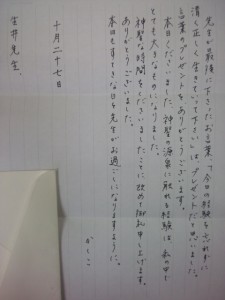 先生が最後に下さったお言葉、"今日の経験を忘れずに
清く正しく生きていって下さい"はプレゼントだと思いました。
言葉のプレゼントをありがとうございます。
本日くださいました、神聖の源泉に触れる経験は、私の中で
とても大きなものになりました。
神聖な時間をくださいましたことに改めて御礼申し上げます。
ありがとうございました。
本日もすてきな日を先生がお過ごしになりますように。
かしこ
十月二十七日
先生